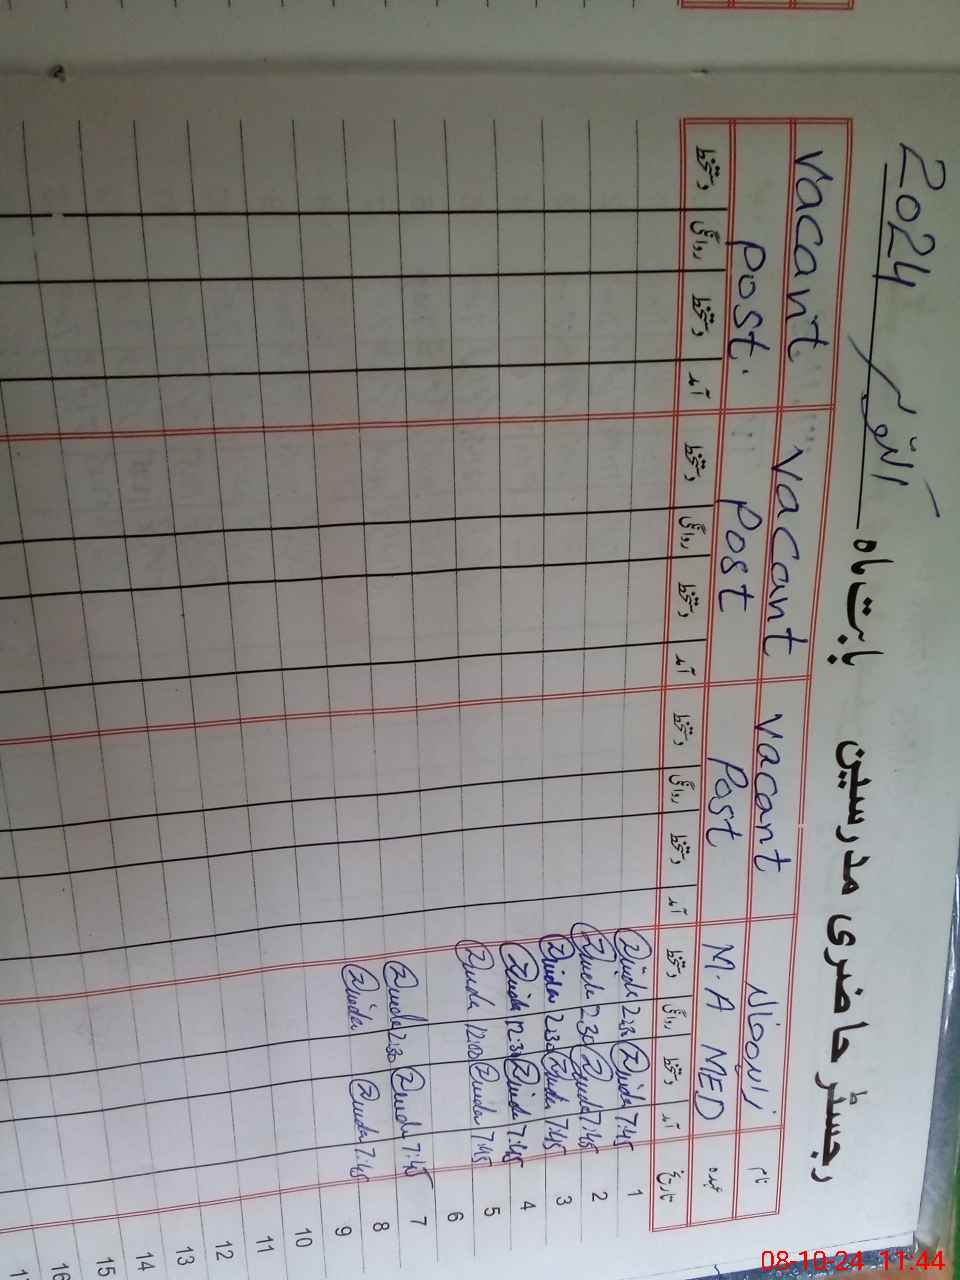 رجسٹر حاضری مدرسین بابت ماہ اکتوبر 2024
نام vacant vacant vacant
عہدہ M.A MED Post Post Post.
تاریخ آمد دستخط روانگی دستخط آمد دستخط روانگی دستخط آمد دستخط روانگی دستخط آمد دستخط روانگی دستخط
1 7:45 Zuida 2:30 Zuida
2 7:45 Zuida 2:30 Zuida
3 7:45 Zuida 2:30 Zuida
4 7:45 Zuida 12:30 Zuida
5 7:45 Zuida 12:00 Zuida
6
7 7:45 Zuida 2:30 Zuida
8 7:45 Zuida Zuida
9
10
11
12
13
14
15
16
08-10-24 11:44